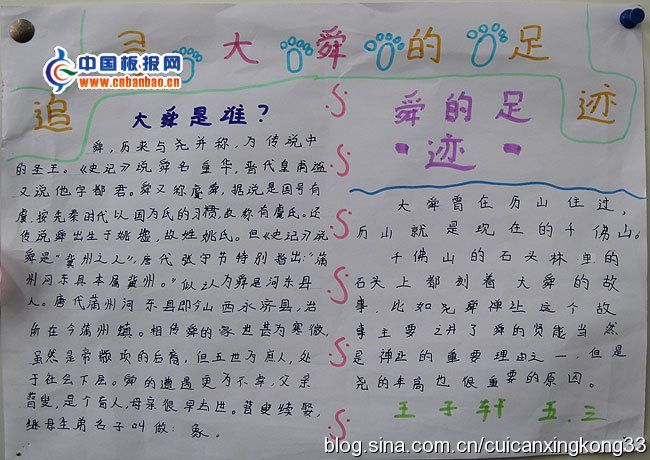 寻 大 舜 的 足
中国板报网
www.cnbanbao.cn
追
迹
大舜是谁？
舜，历来与尧并称，为传说中
的圣王。《史记》说舜名重华，晋代皇甫谧
又说他字都君。舜又称虞舜，据说是国号有
虞，按先秦时代以国为氏的习惯，故称有虞氏。还
传说舜出生于姚墟，故姓姚氏。但《史记》说
舜是“冀州之人”，唐代张守节特别指出：“蒲
州河东县本属冀州。”似认为舜是河东县
人。唐代蒲州河东县即今山西永济县，治
所在今蒲州镇。相传舜的家世甚为寒微，
虽然是颛顼的后裔，但五世为庶人，处
于社会下层。舜的遭遇更为不幸，父亲
瞽叟，是个盲人，母亲很早去世。瞽叟续娶，
继母生弟名子叫做：象。
舜的足
迹
大舜曾在历山住过，
历山就是现在的千佛山。
千佛山的石头林里的
石头上都刻着大舜的故
事，比如尧舜禅让这个故
事主要讲了舜的贤能当然
是禅让的重要理由之一，但是
尧的年高也很重要的原因。
王子轩 五.三
blog.sina.com.cn/cuicanxingkong33